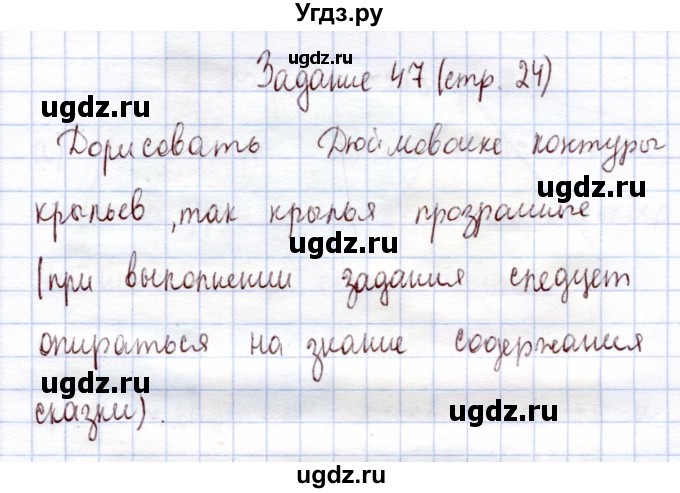 Угдз.ру
ugdz.ru
Задание 47 (стр. 24)
ugdz.ru ugdz.ru
Дорисовать Дюймовочке контуры
ugdz.ru
крыльев, так крылья прозрачные
ugdz.ru
(при выполнении задания следует
ugdz.ru
опираться на знание содержания
ugdz.ru
сказки).
ugdz.ru
ugdz.ru